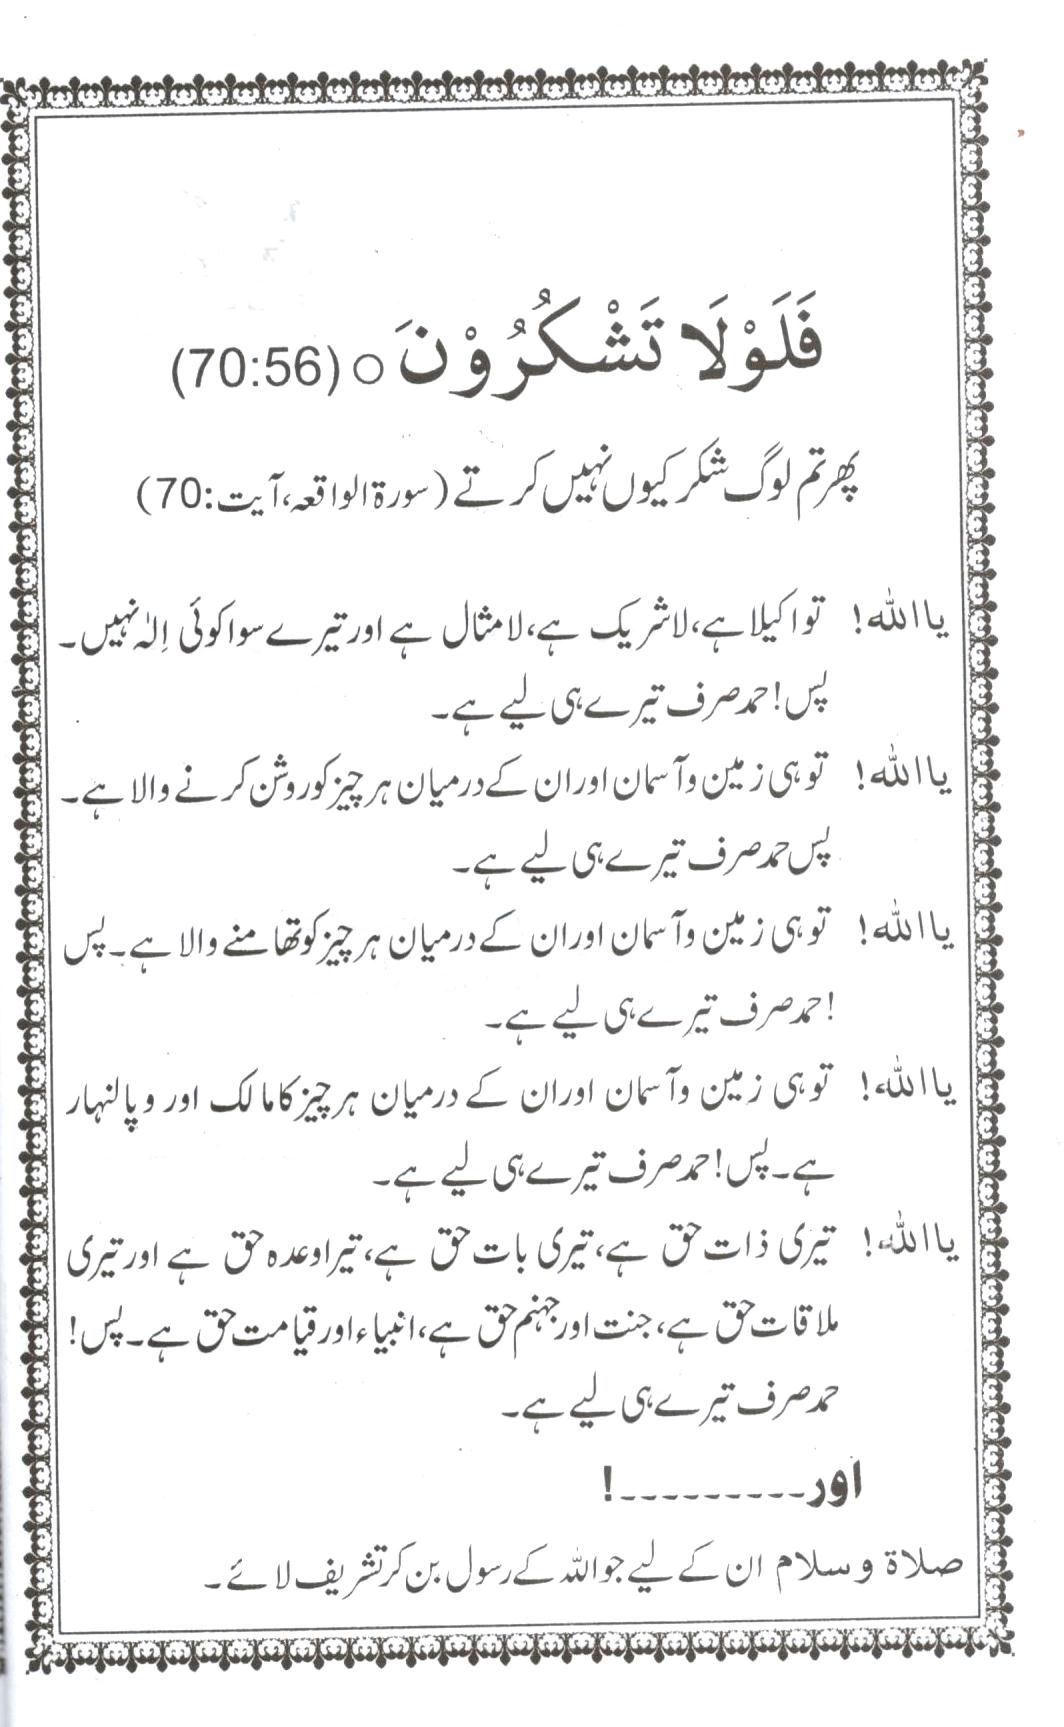 فَلَوْلَا تَشْكُرُوْنَ ○ (70:56)
پھر تم لوگ شکر کیوں نہیں کرتے (سورۃ الواقعہ، آیت: 70)
یا اللہ! تو اکیلا ہے، لا شریک ہے، لا مثال ہے اور تیرے سوا کوئی اِلٰہ نہیں۔
پس! حمد صرف تیرے ہی لیے ہے۔
یا اللہ! تو ہی زمین و آسمان اور ان کے درمیان ہر چیز کو روشن کرنے والا ہے۔
پس حمد صرف تیرے ہی لیے ہے۔
یا اللہ! تو ہی زمین و آسمان اور ان کے درمیان ہر چیز کو تھامنے والا ہے۔ پس
! حمد صرف تیرے ہی لیے ہے۔
یا اللہ! تو ہی زمین و آسمان اور ان کے درمیان ہر چیز کا مالک اور و پالنہار
ہے۔ پس! حمد صرف تیرے ہی لیے ہے۔
یا اللہ! تیری ذات حق ہے، تیری بات حق ہے، تیرا وعدہ حق ہے اور تیری
ملاقات حق ہے، جنت اور جہنم حق ہے، انبیاء اور قیامت حق ہے۔ پس!
حمد صرف تیرے ہی لیے ہے۔
اور۔۔۔۔۔۔۔۔۔!
صلاۃ و سلام ان کے لیے جو اللہ کے رسول بن کر تشریف لائے۔